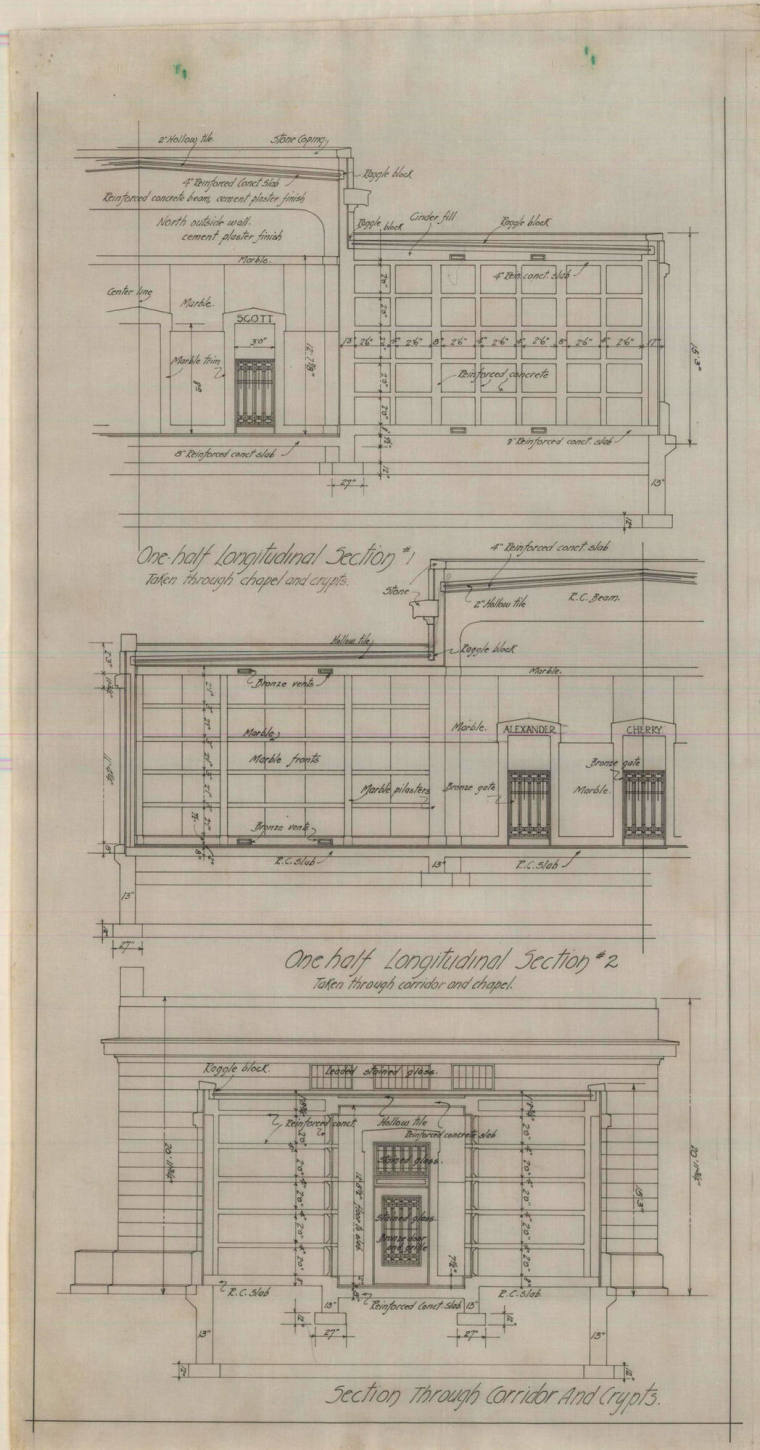 2" Hollow tile
Stone Coping
4" Reinforced Conct. Slab
Raggle block
Reinforced concrete beam, cement plaster finish
North outside wall.
cement plaster finish
Raggle block
Cinder fill
Raggle block
Marble.
4" Rein. conct. slab
Center line
Marble.
SCOTT
3'0"
13"
2'6"
8"
2'6"
8"
2'6"
8"
2'6"
8"
2'6"
8"
2'6"
15'-3"
Marble trim
Reinforced concrete
8" Reinforced conct. slab
27"
12"
13"
12"
One-half Longitudinal Section #1
Taken through chapel and crypts.
4" Reinforced conct. slab
Stone
2" Hollow tile
R.C. Beam.
Hollow tile
Raggle block
Marble.
Bronze vents
Marble.
ALEXANDER
CHERRY
Marble
Marble fronts
Bronze gate
Marble pilasters
Bronze gate
Marble.
Bronze vents
R.C. Slab
13"
R.C. Slab
13"
27"
One half Longitudinal Section #2
Taken through corridor and chapel.
Raggle block.
Leaded stained glass.
Reinforced conct.
Hollow tile
Reinforced concrete slab
Stained glass.
Stained glass
Bronze door
and grille
15'-3"
R.C. Slab
Reinforced Conct. Slab
R.C. Slab
13"
13"
13"
13"
27"
27"
12"
12"
Section Through Corridor And Crypts.